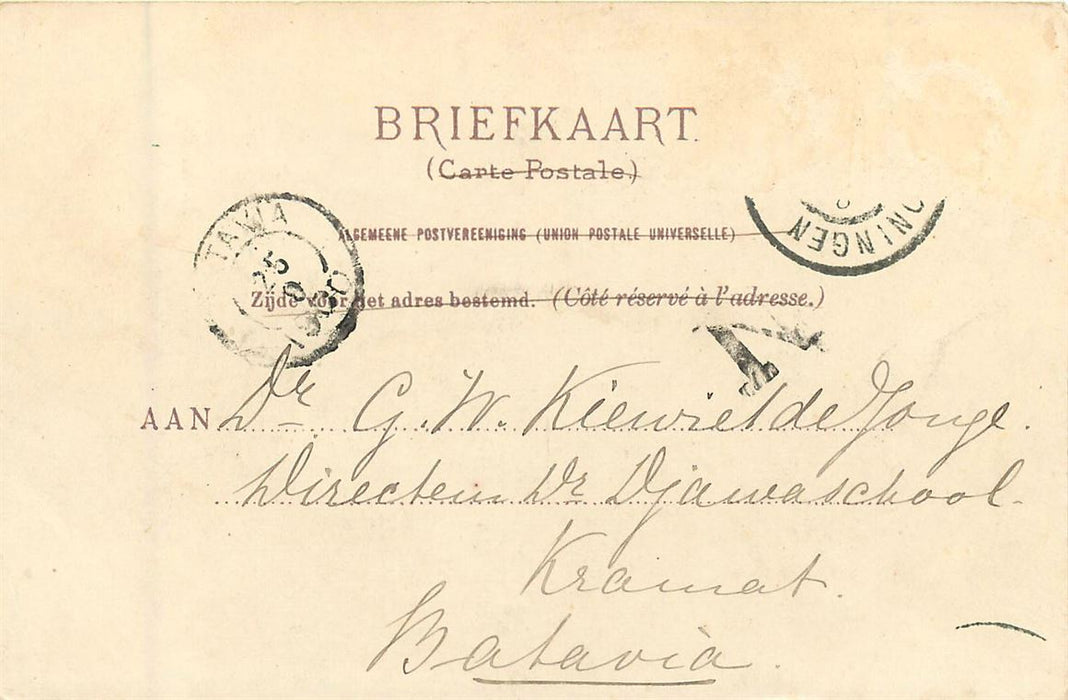 BRIEFKAART.
(Carte Postale.)
ALGEMEENE POSTVEREENIGING (UNION POSTALE UNIVERSELLE)
Zijde voor het adres bestemd. (Côté réservé à l'adresse.)
TAVIA
25
9
1900
NINGEN
N
AAN Dr G. W. Kiewiet de Jonge.
Directeur Dr Djawaschool
Kramat.
Batavia.